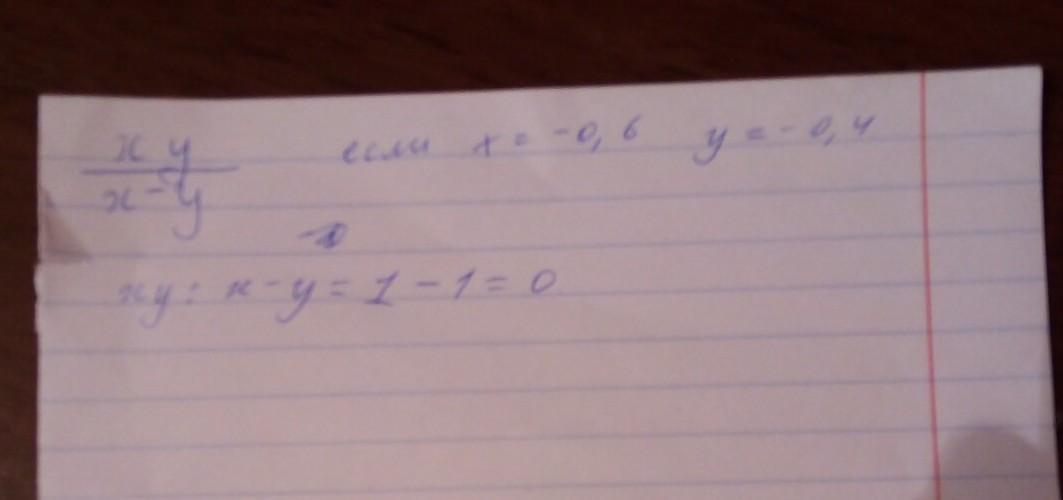 xy если x = -0,6 y = -0,4
x-y
xy : x-y = 1 - 1 = 0